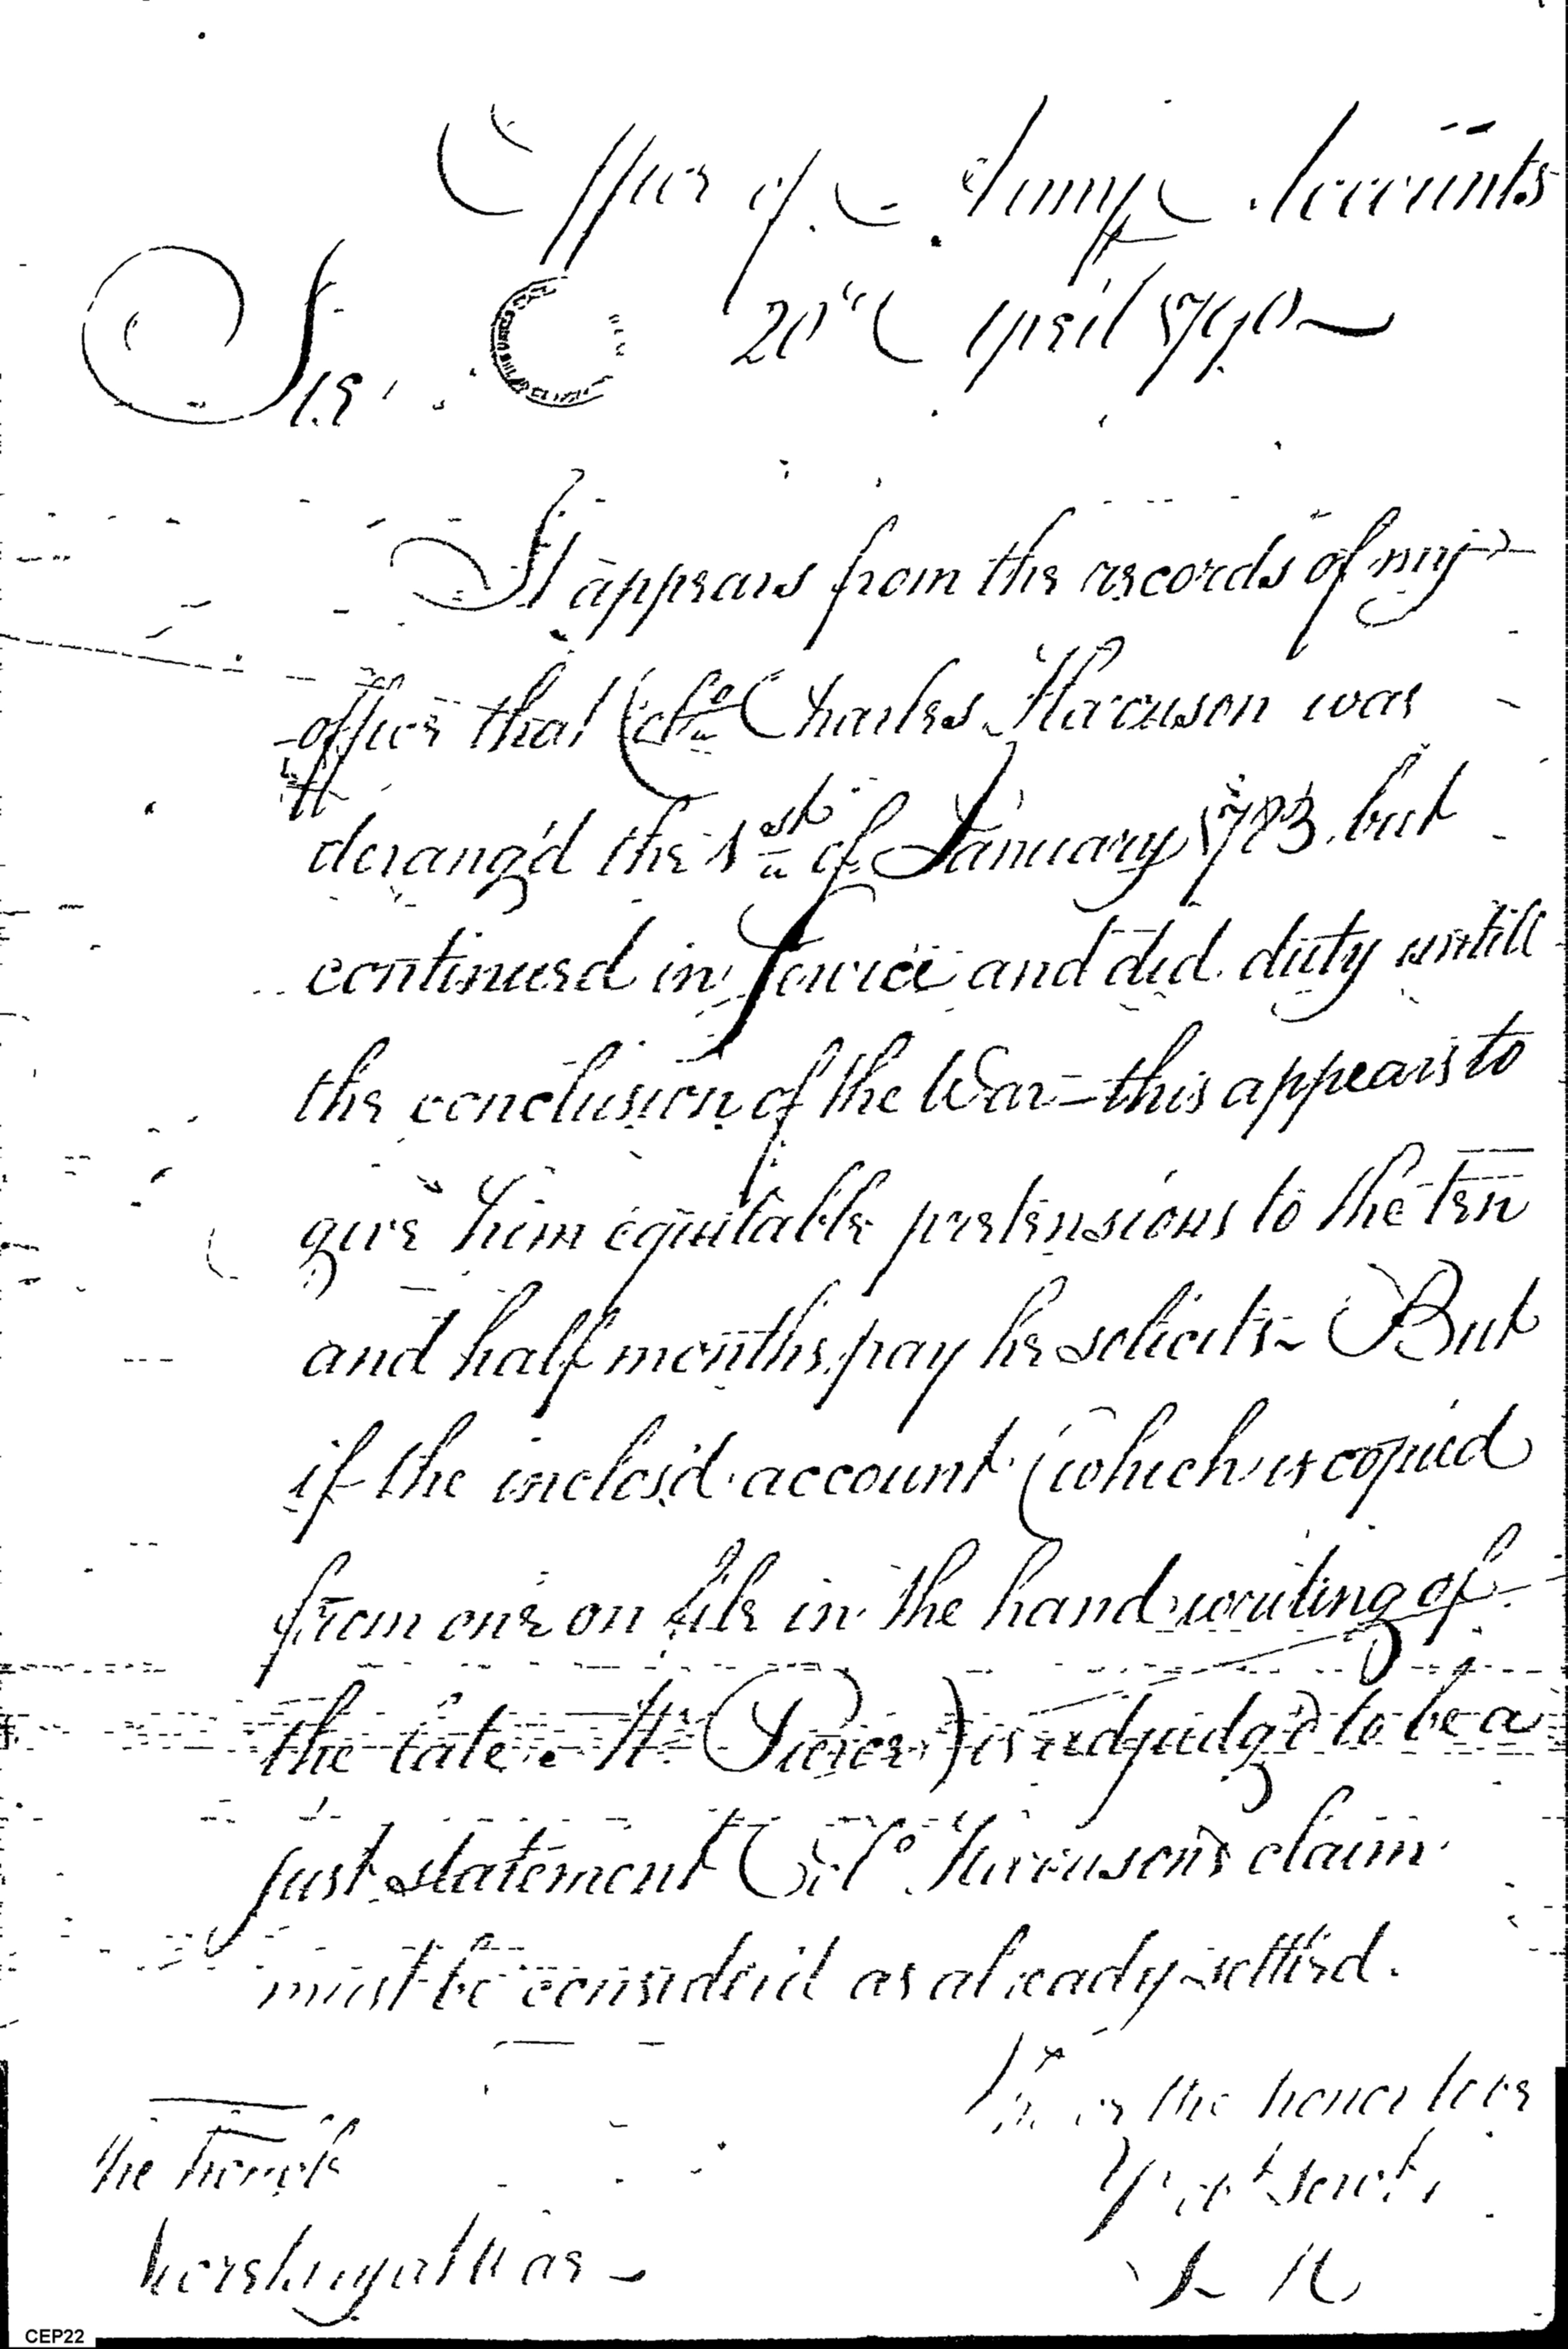 Office of Army Accounts
20th April 1790
Sir
It appears from the records of my
office that Colo Charles Harrison was
derang'd the 1st of January 1783 but
continued in Service and did duty untill
the conclusion of the War - this appears to
give him equitable pretensions to the ten
and half months pay he solicits - But
if the inclos'd account (which is copied
from one on file in the hand writing of
the late Mr Pierce) is adjudg'd to be a
just statement Colo Harrison's claim
must be consider'd as already settled.
the honor to be
Yr obt servt
The honble
Secretary at War -
CEP22